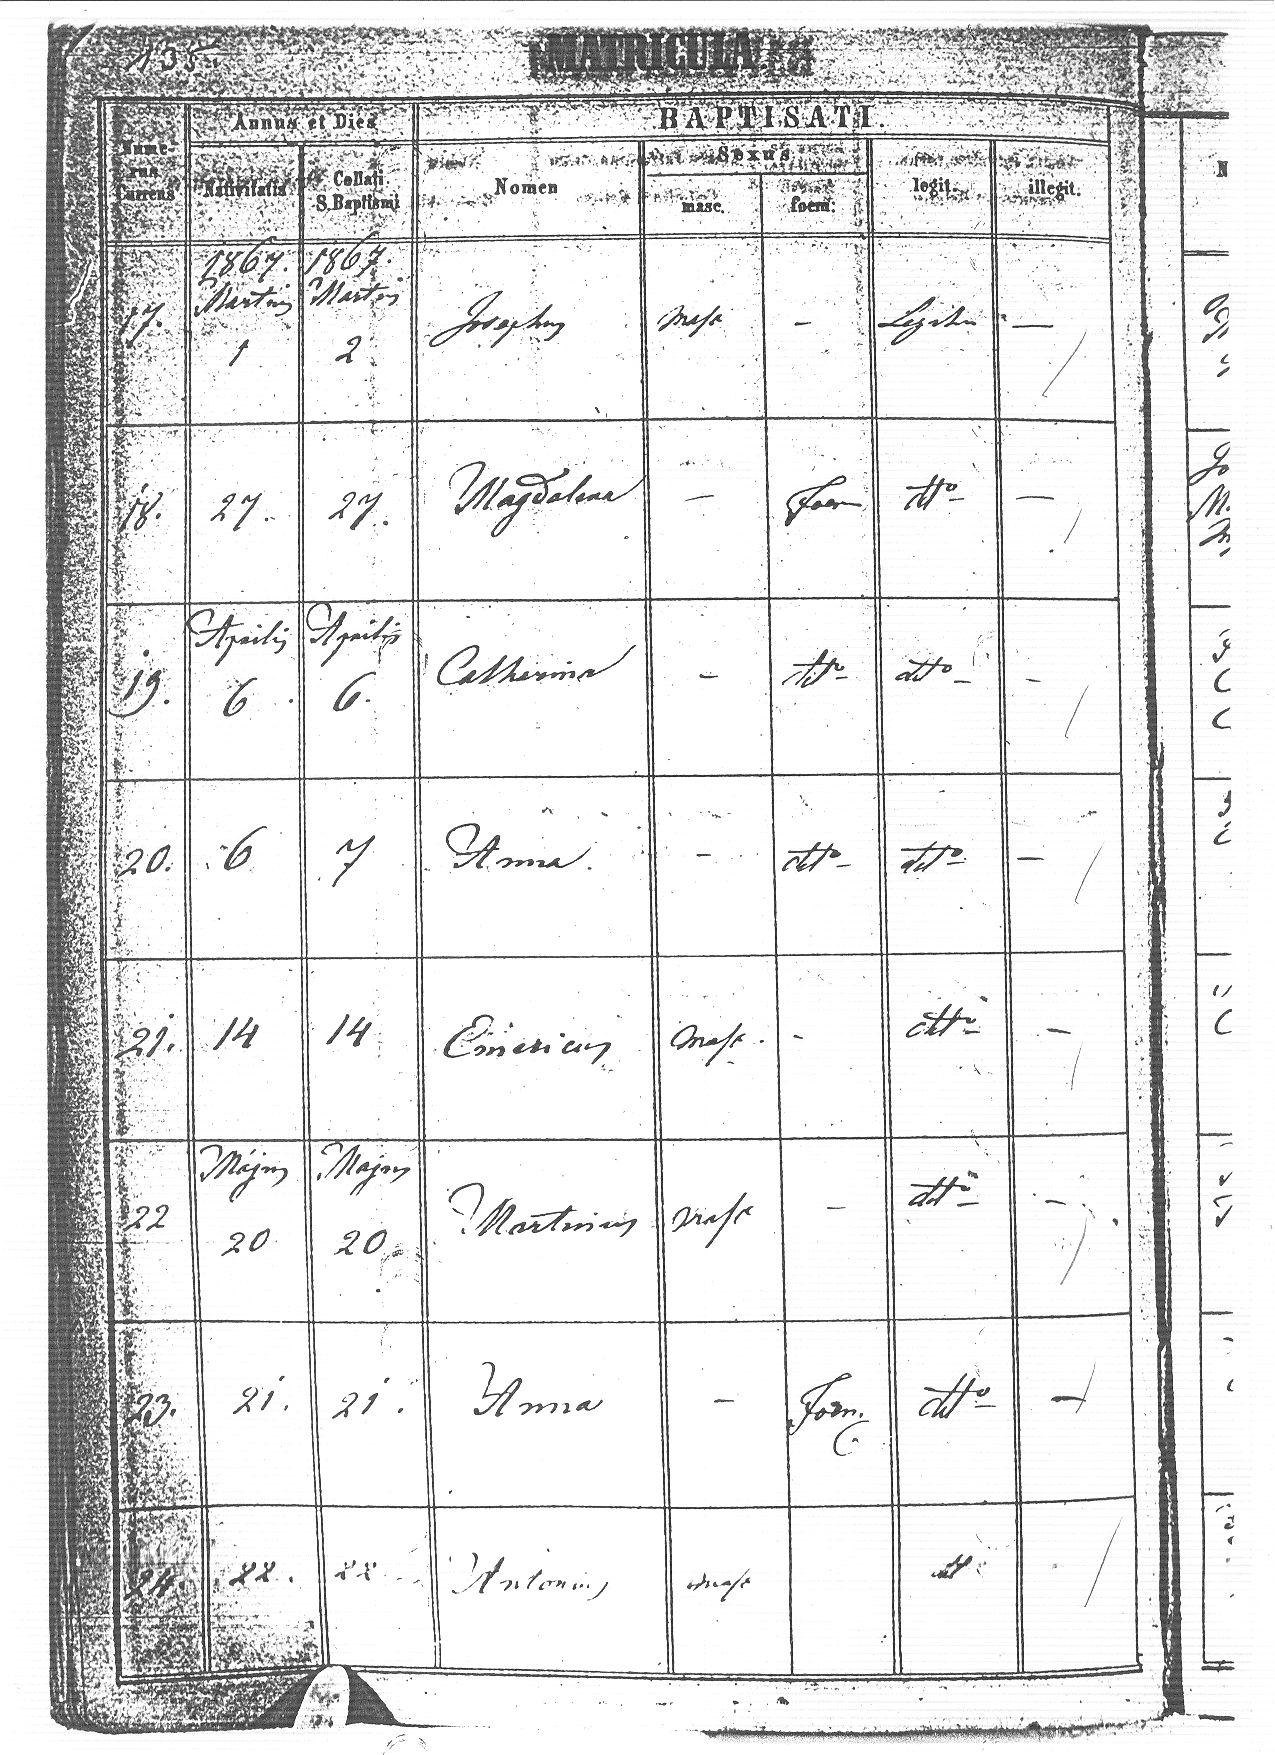 135
MATRICULA
Annus et Dies BAPTISATI
Numerus Currens Nativitatis Collati S. Baptismi Nomen Sexus masc. foem. legit. illegit.
1867. 1867.
Martius Martius
17. 1 2 Josephus Masc —  —
18. 27. 27. Magdalena — Foem dtto —
Aprilis Aprilis
19. 6 6. Catherina — dtto dtto —
20. 6 7 Anna. — dtto dtto —
21. 14 14 Emericus Masc. - dtto —
Május Majus
22 20 20 Martinus Masc — dtto —
23. 21. 21. Anna — Foem. dtto —
24. 22. 22 Antonius masc dtt